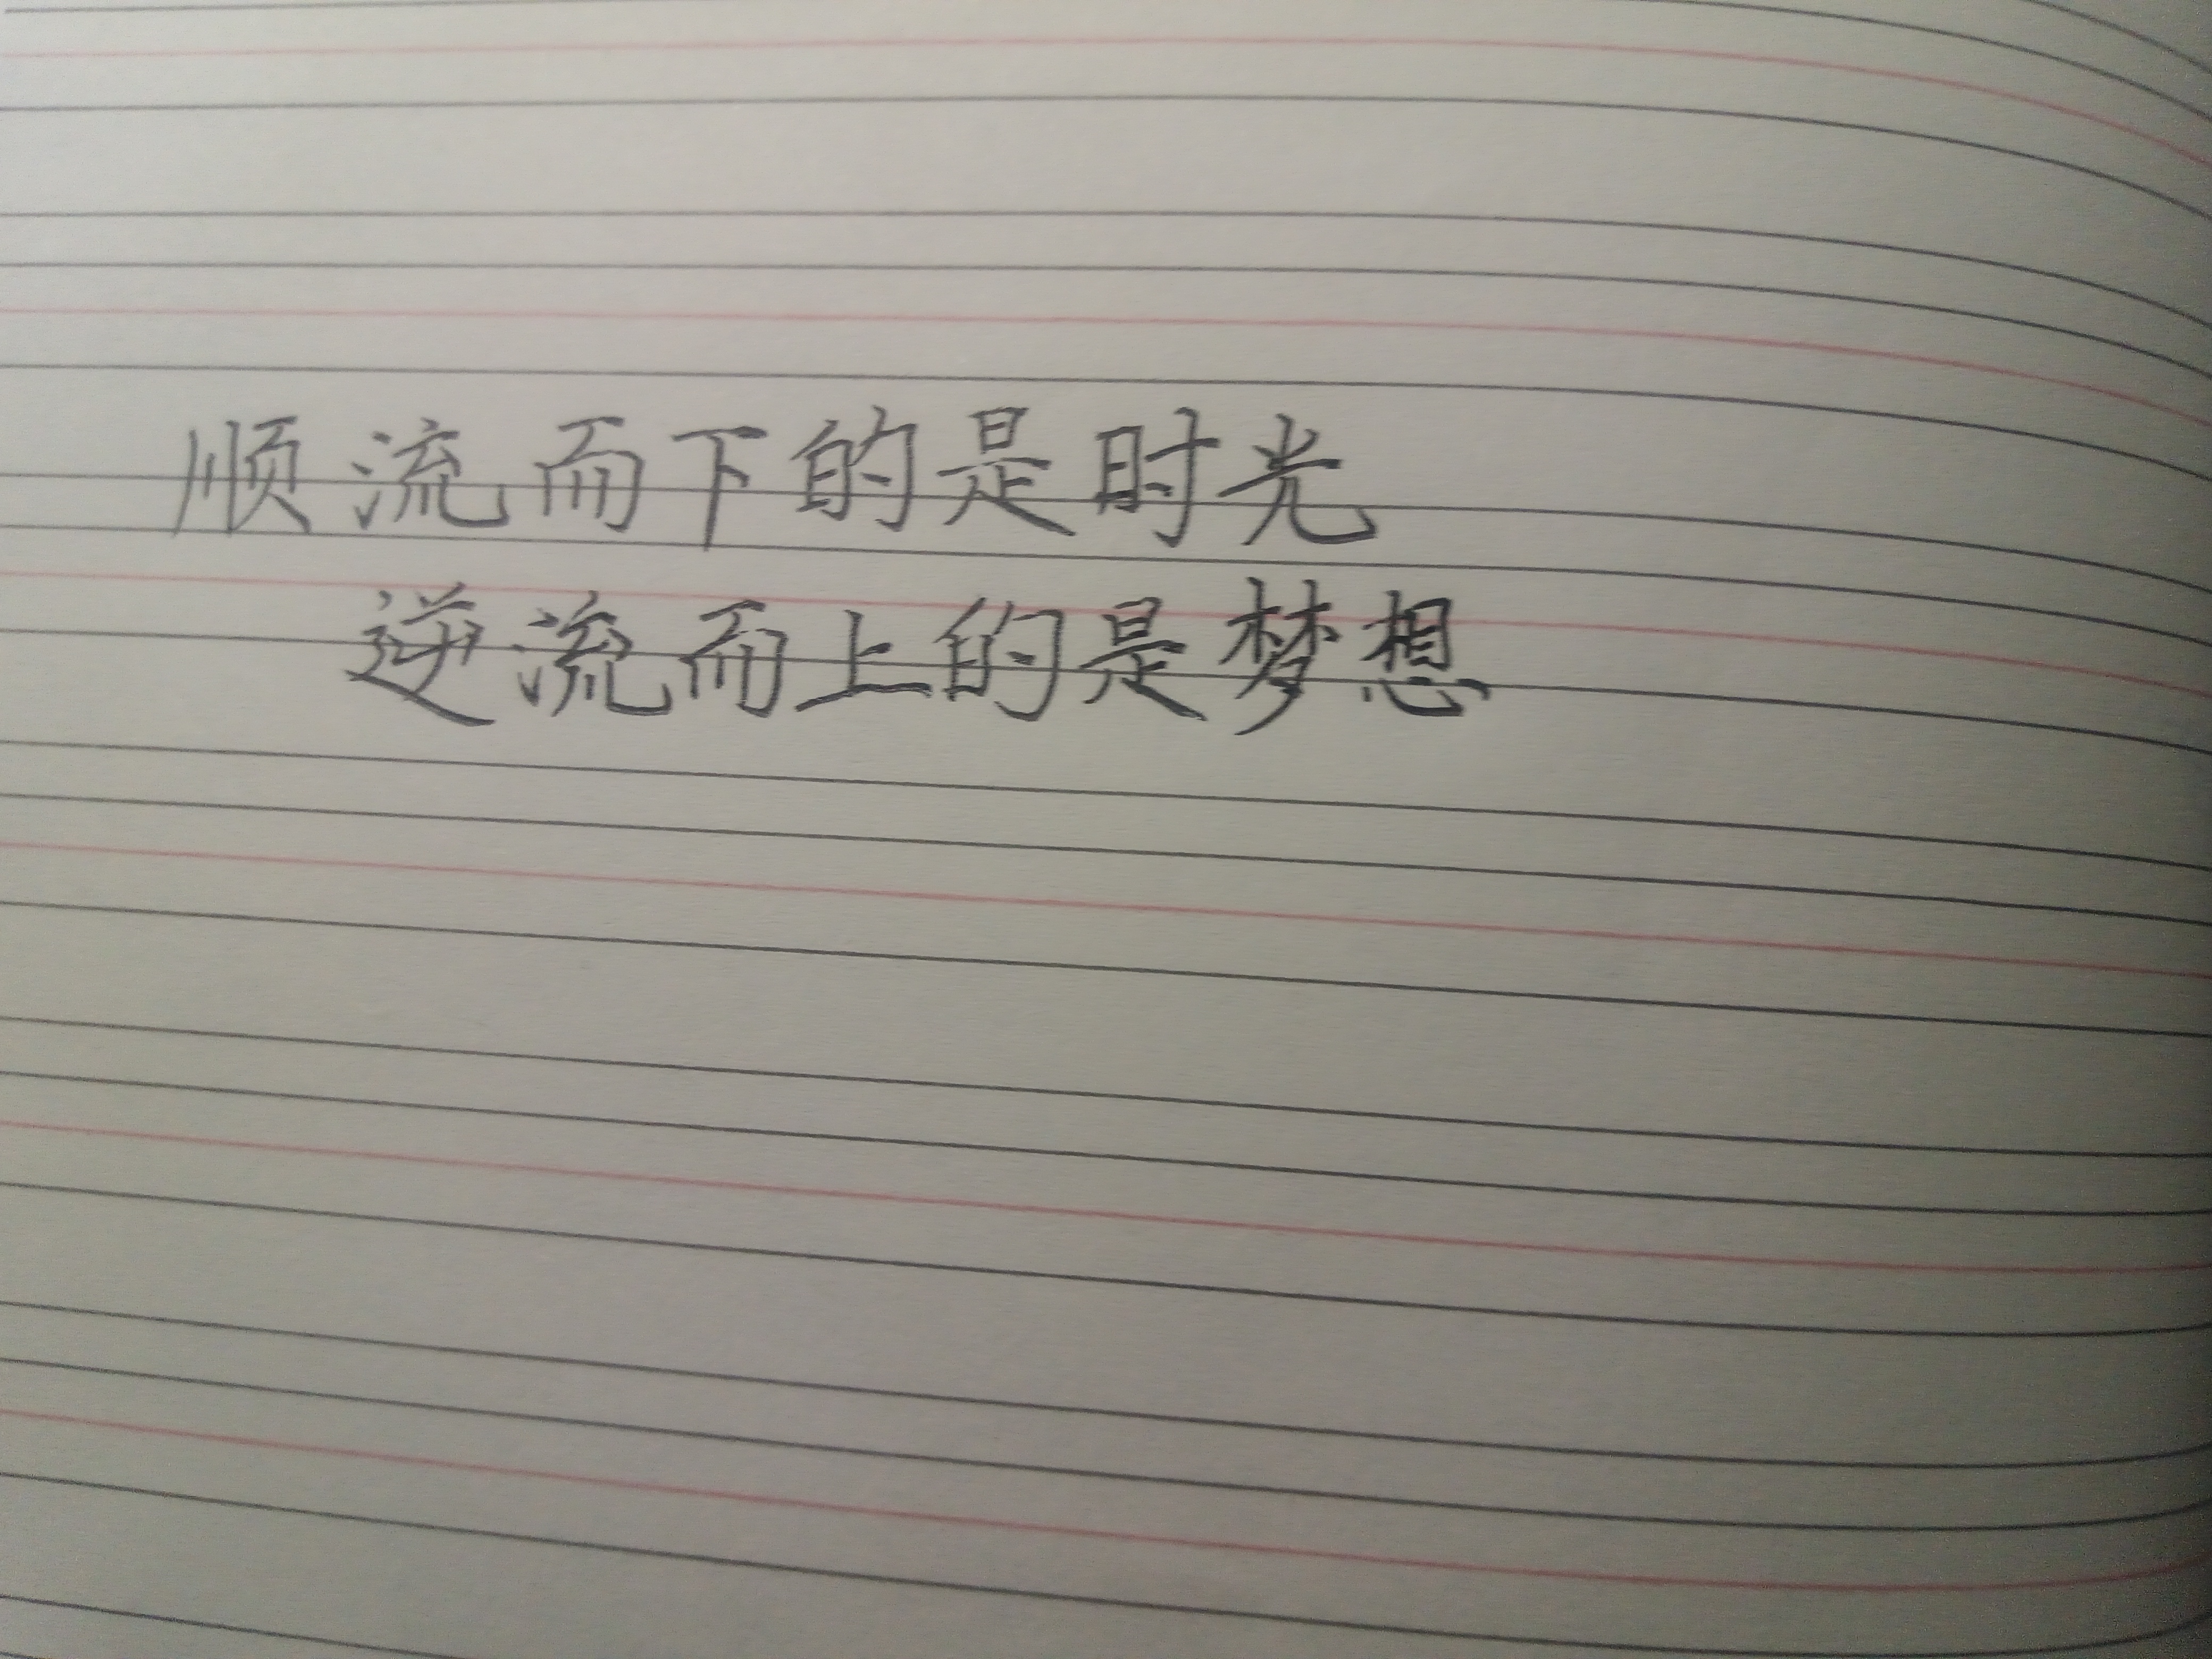 顺流而下的是时光
逆流而上的是梦想